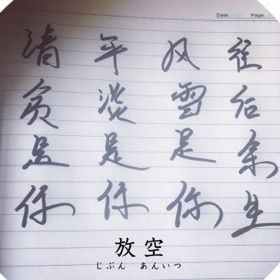 Date.
Page.
往后余生
风雪是你
平淡是你
清贫是你
放空
じぶん あんいつ